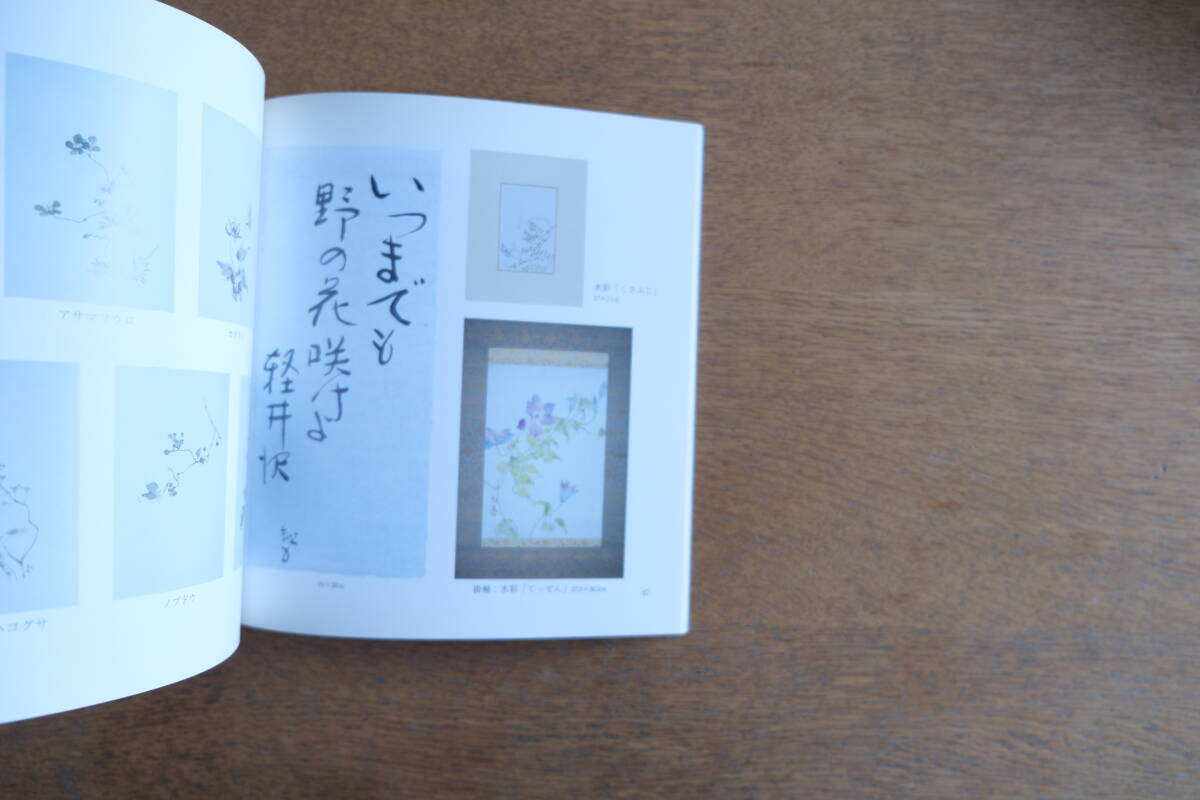 アサマフウロ
ノブドウ
ハコグサ
いつまでも
野の花咲けよ
軽井沢
水彩「くさふじ」
掛軸：水彩「てっせん」
47